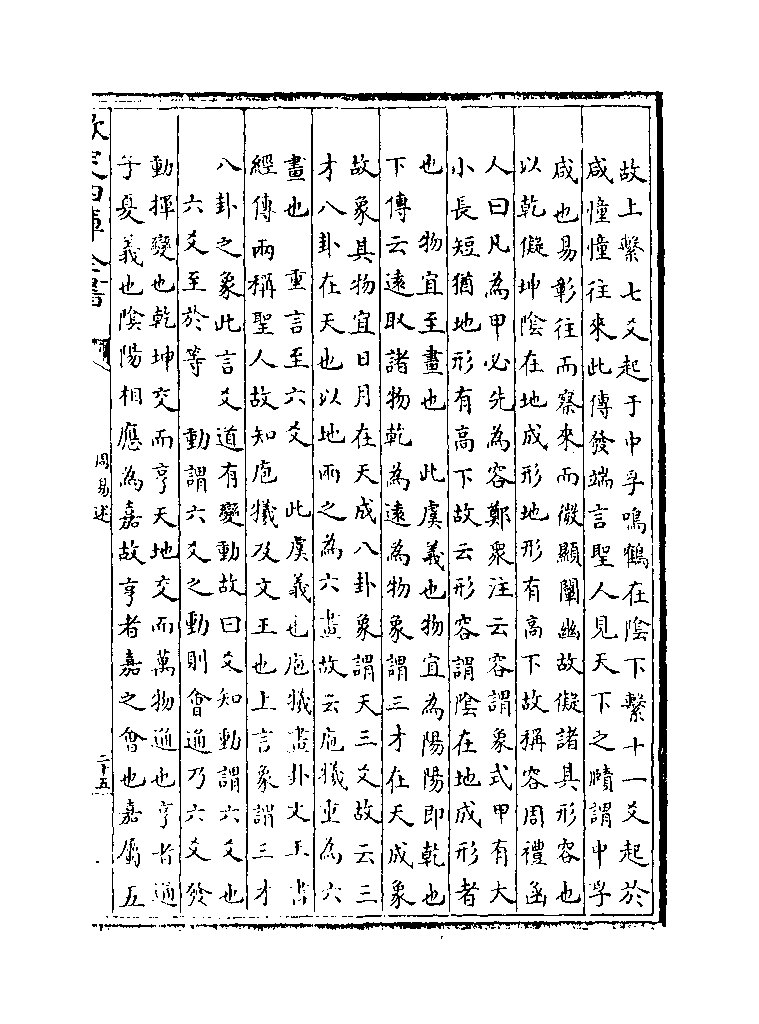 故上繫七爻起于中孚鳴鶴在陰下繫十一爻起於
咸憧憧往來此傳發端言聖人見天下之賾謂中孚
咸也易彰往而察來而微顯闡幽故儗諸其形容也
以乾儗坤陰在地成形地形有高下故稱容周禮函
人曰凡為甲必先為容鄭衆注云容謂象式甲有大
小長短猶地形有高下故云形容謂陰在地成形者
也　物宜至畫也　此虞義也物宜為陽陽即乾也
下傳云遠取諸物乾為遠為物象謂三才在天成象
故象其物宜日月在天成八卦象謂天三爻故云三
才八卦在天也以地兩之為六畫故云庖犧重為六
畫也　重言至六爻　此虞義也庖犧畫卦文王書
經傳兩稱聖人故知庖犧及文王也上言象謂三才
八卦之象此言爻道有變動故曰爻知動謂六爻也
六爻至於等　動謂六爻之動則會通乃六爻發
動揮變也乾坤交而亨天地交而萬物通也亨者通
子夏義也陰陽相應為嘉故亨者嘉之會也嘉屬五
欽定四庫全書
周易述
二十五